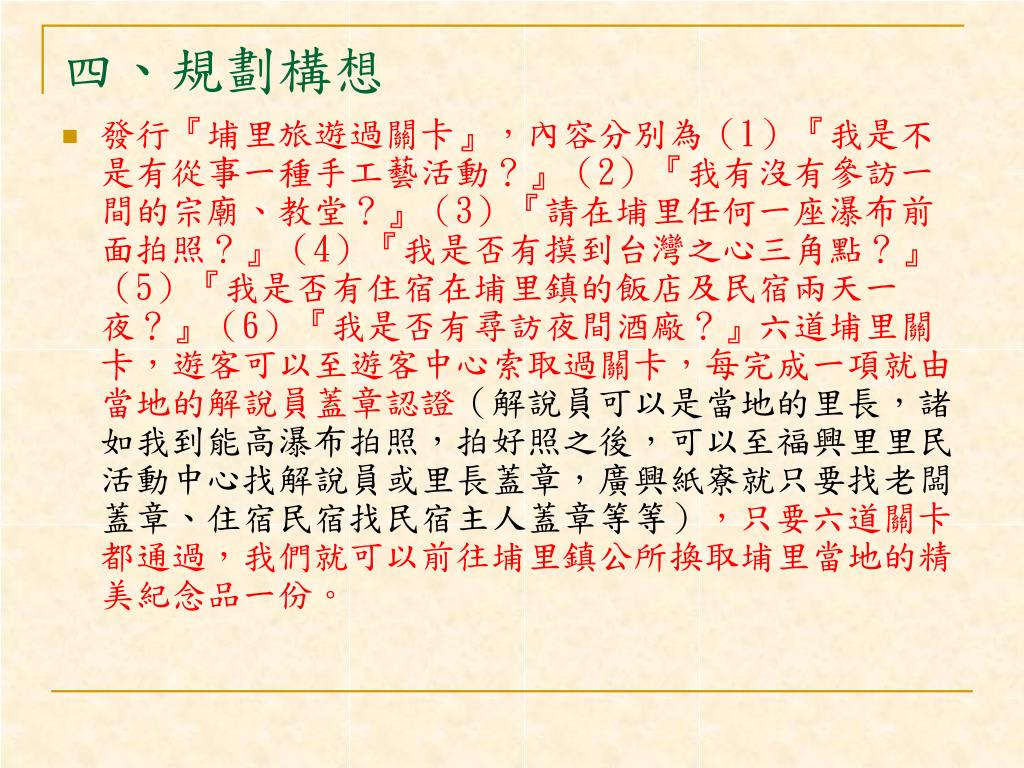 四、規劃構想
發行『埔里旅遊過關卡』，內容分別為（1）『我是不
是有從事一種手工藝活動？』（2）『我有沒有參訪一
間的宗廟、教堂？』（3）『請在埔里任何一座瀑布前
面拍照？』（4）『我是否有摸到台灣之心三角點？』
（5）『我是否有住宿在埔里鎮的飯店及民宿兩天一
夜？』（6）『我是否有尋訪夜間酒廠？』六道埔里關
卡，遊客可以至遊客中心索取過關卡，每完成一項就由
當地的解說員蓋章認證（解說員可以是當地的里長，諸
如我到能高瀑布拍照，拍好照之後，可以至福興里里民
活動中心找解說員或里長蓋章，廣興紙寮就只要找老闆
蓋章、住宿民宿找民宿主人蓋章等等），只要六道關卡
都通過，我們就可以前往埔里鎮公所換取埔里當地的精
美紀念品一份。